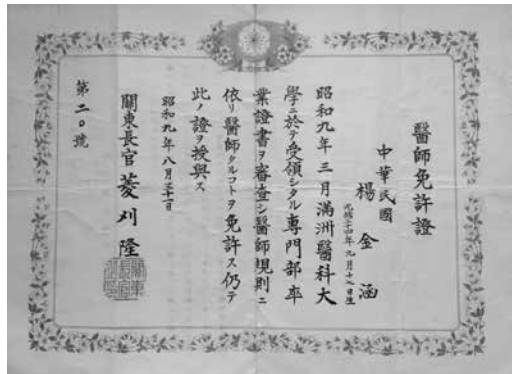 醫師免許證
中華民國
楊金涵
光緒三十四年九月十七日生
昭和九年三月滿洲醫科大
學ニ於テ受領シタル專門部卒
業證書ヲ審査シ醫師規則ニ
依リ醫師タルコトヲ免許ス仍テ
此ノ證ヲ授與ス
昭和九年八月三十一日
關東長官菱刈隆
第二〇號